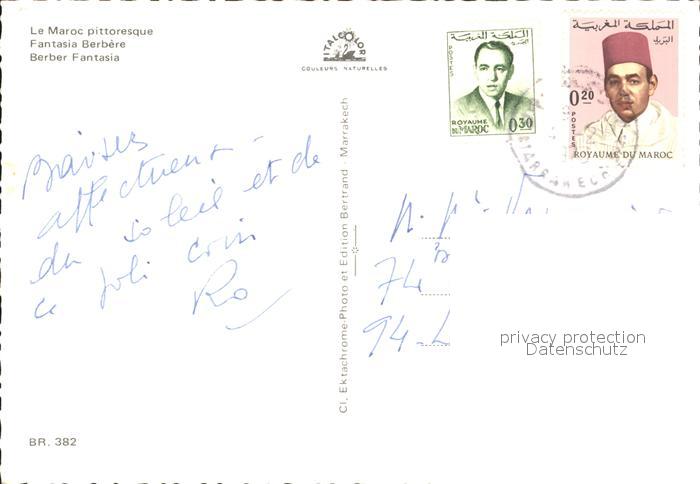 Le Maroc pittoresque
Fantasia Berbère
Berber Fantasia
ITALCOLOR
COULEURS NATURELLES
المملكة المغربية
البريد
POSTES
ROYAUME
DU MAROC
0,30
المملكة المغربية
البريد
0,20
POSTES
ROYAUME DU MAROC
MARRAKECH
Baisers
affectueux
du soleil et de
ce joli coin
Cl. Ektachrome-Photo et Edition Bertrand - Marrakech
74
94-L
privacy protection
Datenschutz
BR. 382